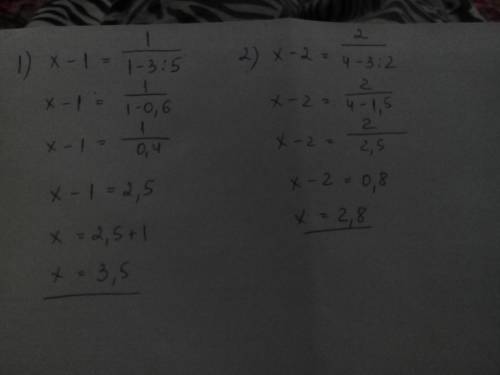 1) x - 1 = 1/(1-3:5)
x - 1 = 1/(1-0,6)
x - 1 = 1/0,4
x - 1 = 2,5
x = 2,5+1
x = 3,5
2) x - 2 = 2/(4-3:2)
x - 2 = 2/(4-1,5)
x - 2 = 2/2,5
x - 2 = 0,8
x = 2,8